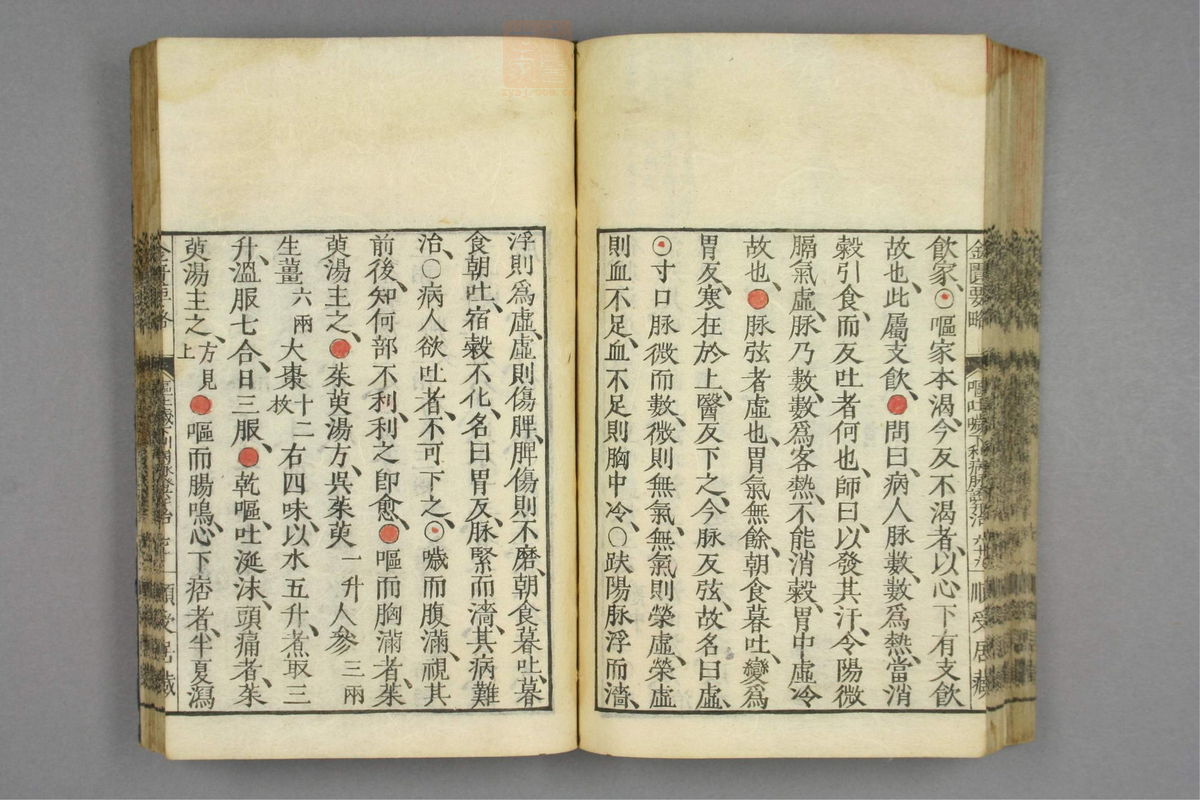 金匱要略 嘔吐噦下利病脉證治 順受居藏
飲家○嘔家本渴、今反不渴者、以心下有支飲
故也、此屬支飲、●問曰、病人脉數、數爲熱、當消
穀引食、而反吐者何也、師曰、以發其汗、令陽微
膈氣虛、脉乃數、數爲客熱、不能消穀、胃中虛冷
故也、●脉弦者虛也、胃氣無餘、朝食暮吐、變爲
胃反、寒在於上、醫反下之、今脉反弦、故名曰虛、
○寸口脉微而數、微則無氣、無氣則榮虛、榮虛
則血不足、血不足則胸中冷、○趺陽脉浮而濇、
浮則爲虛、虛則傷脾、脾傷則不磨、朝食暮吐、暮
食朝吐、宿穀不化、名曰胃反、脉緊而濇、其病難
治、○病人欲吐者、不可下之、○噦而腹滿、視其
前後、知何部不利、利之卽愈、●嘔而胸滿者、茱
萸湯主之、●茱萸湯方、吳茱萸一升人參三兩
生薑六兩大棗十二枚右四味、以水五升、煮取三
升、溫服七合、日三服、●乾嘔吐涎沫、頭痛者、茱
萸湯主之、方見上●嘔而腸鳴、心下痞者、半夏瀉